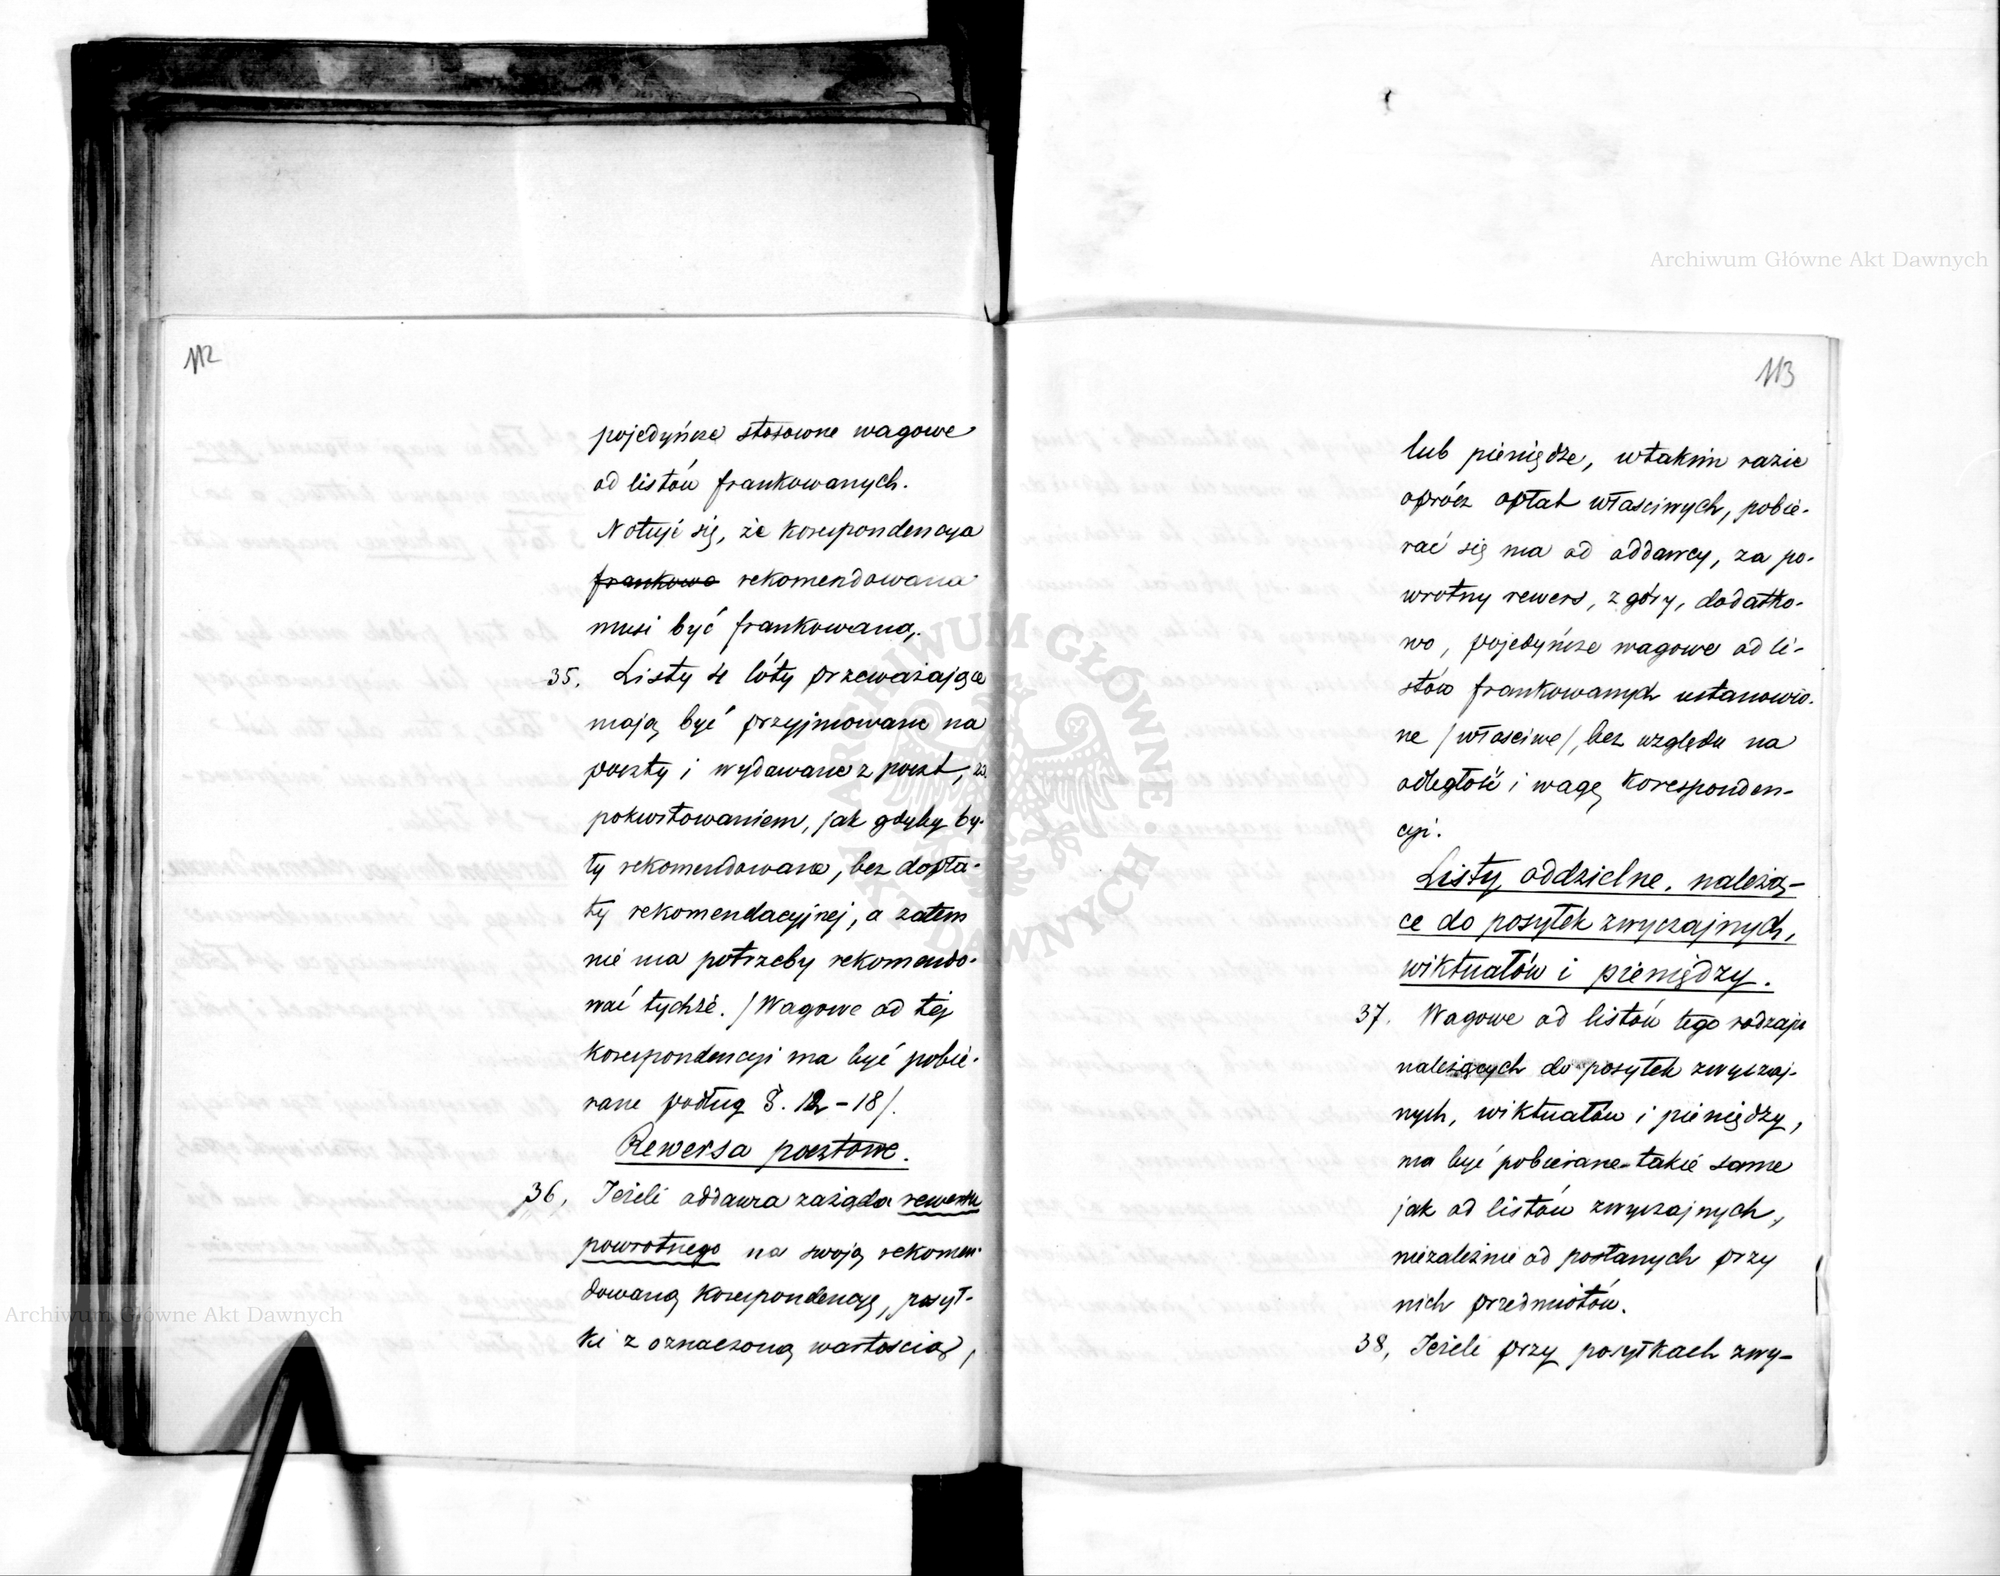 112
pojedyńcze stosowne wagowe
od listów frankowanych.
Notuje się, że korespondencya
frankowa rekomendowana
musi być frankowaną.
35. Listy 4 łóty przeważające
mają być przyjmowane na
poczty i wydawane z poczt, za
pokwitowaniem, jak gdyby by-
ły rekomendowane, bez dopła-
ty rekomendacyjnej, a zatem
nie ma potrzeby rekomendo-
wać tychże. /Wagowe od tej
korespondencyi ma być pobie-
rane podług §. 12-18/.
Rewersa pocztowe.
36, Jeżeli oddawca zażąda rewersu
powrotnego na swoją rekomen-
dowaną korespondencyę, posył-
ki z oznaczoną wartością,
113
lub pieniądze, w takim razie
oprócz opłat właściwych, pobie-
rać się ma od oddawcy, za po-
wrotny rewers, z góry, dodatko-
wo, pojedyńcze wagowe od li-
stów frankowanych ustanowio-
ne /właściwe/, bez względu na
odległość i wagę koresponden-
cyi.
Listy oddzielne, należą-
ce do posyłek zwyczajnych,
wiktuałów i pieniędzy.
37. Wagowe od listów tego rodzaju
należących do posyłek zwyczaj-
nych, wiktuałów i pieniędzy,
ma być pobierane takie same
jak od listów zwyczajnych,
niezależnie od posłanych przy
nich przedmiotów.
38, Jeżeli przy posyłkach zwy-
Archiwum Główne Akt Dawnych
Archiwum Główne Akt Dawnych
ARCHIWUM GŁÓWNE AKT DAWNYCH